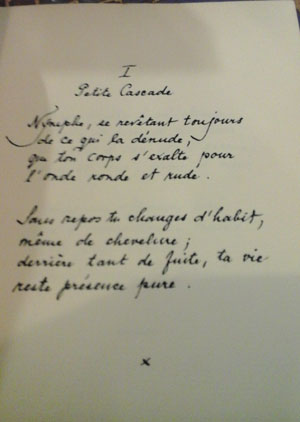 I
Petite Cascade
Nymphe, se revêtant toujours
de ce qui la dénude,
que ton corps s'exalte pour
l'onde ronde et rude.
Sans repos tu changes d'habit,
même de chevelure ;
derrière tant de fuite, ta vie
reste présence pure.
x